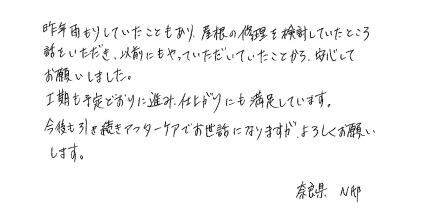 昨年雨もりしていたこともあり、屋根の修理を検討していたところ
話をいただき、以前にもやっていただいていたことから、安心して
お願いしました。
工期も予定どおりに進み、仕上がりにも満足しています。
今後も引き続きアフターケアでお世話になりますが、よろしくお願い
します。
奈良県 N邸